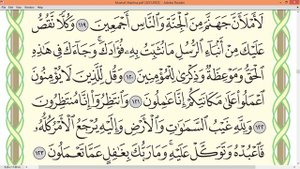 Mushaf Madina.pdf (SECURED) - Adobe Reader
لَأَمْلَأَنَّ جَهَنَّمَ مِنَ ٱلْجِنَّةِ وَٱلنَّاسِ أَجْمَعِينَ ١١٩ وَكُلًّا نَّقُصُّ
عَلَيْكَ مِنْ أَنۢبَآءِ ٱلرُّسُلِ مَا نُثَبِّتُ بِهِۦ فُؤَادَكَ ۚ وَجَآءَكَ فِى هَٰذِهِ
ٱلْحَقُّ وَمَوْعِظَةٌ وَذِكْرَىٰ لِلْمُؤْمِنِينَ ١٢٠ وَقُل لِّلَّذِينَ لَا يُؤْمِنُونَ
ٱعْمَلُوا۟ عَلَىٰ مَكَانَتِكُمْ إِنَّا عَٰمِلُونَ ١٢١ وَٱنتَظِرُوٓا۟ إِنَّا مُنتَظِرُونَ
١٢٢ وَلِلَّهِ غَيْبُ ٱلسَّمَٰوَٰتِ وَٱلْأَرْضِ وَإِلَيْهِ يُرْجَعُ ٱلْأَمْرُ كُلُّهُۥ
فَٱعْبُدْهُ وَتَوَكَّلْ عَلَيْهِ ۚ وَمَا رَبُّكَ بِغَٰفِلٍ عَمَّا تَعْمَلُونَ ١٢٣